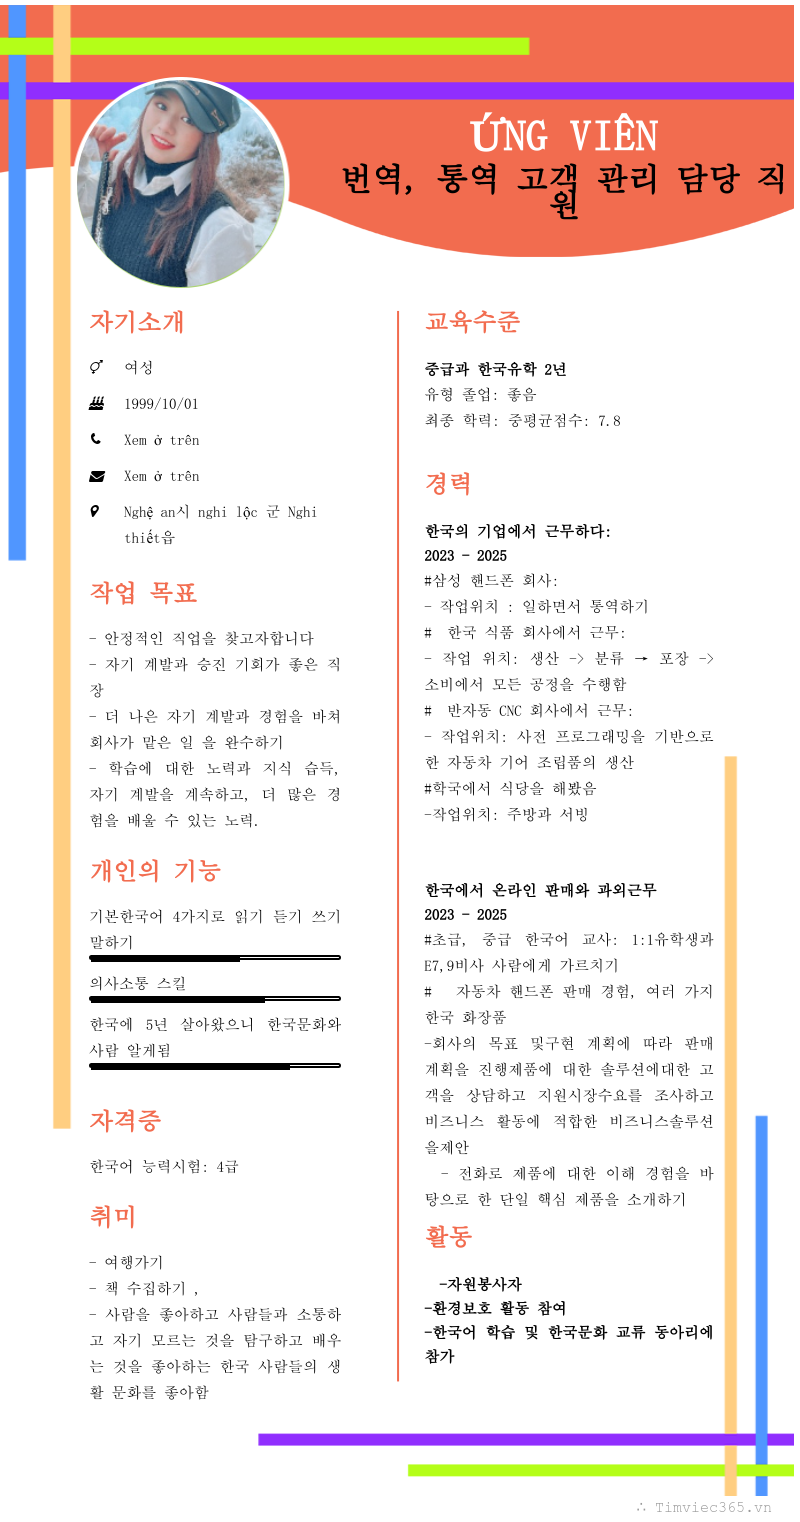 ỨNG VIÊN
번역, 통역 고객 관리 담당 직
원
자기소개
여성
1999/10/01
Xem ở trên
Xem ở trên
Nghệ an시 nghi lộc 군 Nghi
thiết읍
작업 목표
- 안정적인 직업을 찾고자합니다
- 자기 계발과 승진 기회가 좋은 직
장
- 더 나은 자기 계발과 경험을 바쳐
회사가 맡은 일 을 완수하기
- 학습에 대한 노력과 지식 습득,
자기 계발을 계속하고, 더 많은 경
험을 배울 수 있는 노력.
개인의 기능
기본한국어 4가지로 읽기 듣기 쓰기
말하기
의사소통 스킬
한국에 5년 살아왔으니 한국문화와
사람 알게됨
자격증
한국어 능력시험: 4급
취미
- 여행가기
- 책 수집하기 ,
- 사람을 좋아하고 사람들과 소통하
고 자기 모르는 것을 탐구하고 배우
는 것을 좋아하는 한국 사람들의 생
활 문화를 좋아함
교육수준
중급과 한국유학 2년
유형 졸업: 좋음
최종 학력: 중평균점수: 7.8
경력
한국의 기업에서 근무하다:
2023 - 2025
#삼성 핸드폰 회사:
- 작업위치 : 일하면서 통역하기
# 한국 식품 회사에서 근무:
- 작업 위치: 생산 -> 분류 → 포장 ->
소비에서 모든 공정을 수행함
# 반자동 CNC 회사에서 근무:
- 작업위치: 사전 프로그래밍을 기반으로
한 자동차 기어 조립품의 생산
#학국에서 식당을 해봤음
-작업위치: 주방과 서빙
한국에서 온라인 판매와 과외근무
2023 - 2025
#초급, 중급 한국어 교사: 1:1유학생과
E7,9비사 사람에게 가르치기
# 자동차 핸드폰 판매 경험, 여러 가지
한국 화장품
-회사의 목표 및구현 계획에 따라 판매
계획을 진행제품에 대한 솔루션에대한 고
객을 상담하고 지원시장수요를 조사하고
비즈니스 활동에 적합한 비즈니스솔루션
을제안
- 전화로 제품에 대한 이해 경험을 바
탕으로 한 단일 핵심 제품을 소개하기
활동
-자원봉사자
-환경보호 활동 참여
-한국어 학습 및 한국문화 교류 동아리에
참가
∴ Timviec365.vn